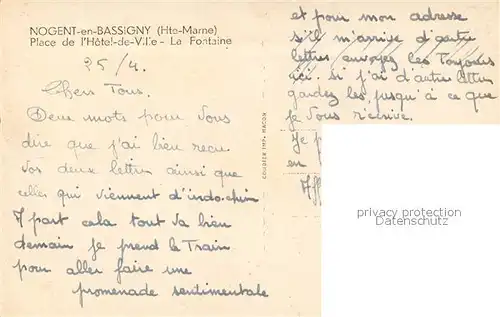 NOGENT-en-BASSIGNY (Hte-Marne)
Place de l'Hôtel-de-Ville - La Fontaine
25/4.
Chers Tous.
Deux mots pour vous
dire que j'ai bien recu
vos deux lettres ainsi que
celles qui viennent d'indo-chine
A part cela tout va bien
demain je prend le Train
pour aller faire une
promenade sentimentale
COURIER IMP. MACON
et pour mon adresse
s'il m'arrive d'autre
lettres envoyez les Toujours
ici. si j'ai d'autre lettres
gardez les jusqu'à ce que
je vous r'écrive.
Je
en
Aff
privacy protection
Datenschutz